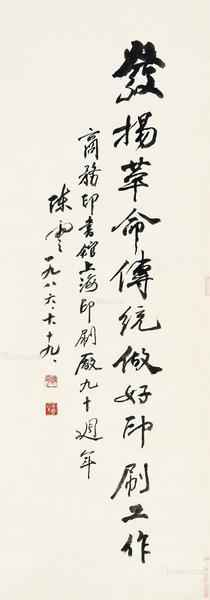 發揚革命傳統做好印刷工作
商務印書館上海印刷廠九十週年
陳雲
一九八六·六·十九